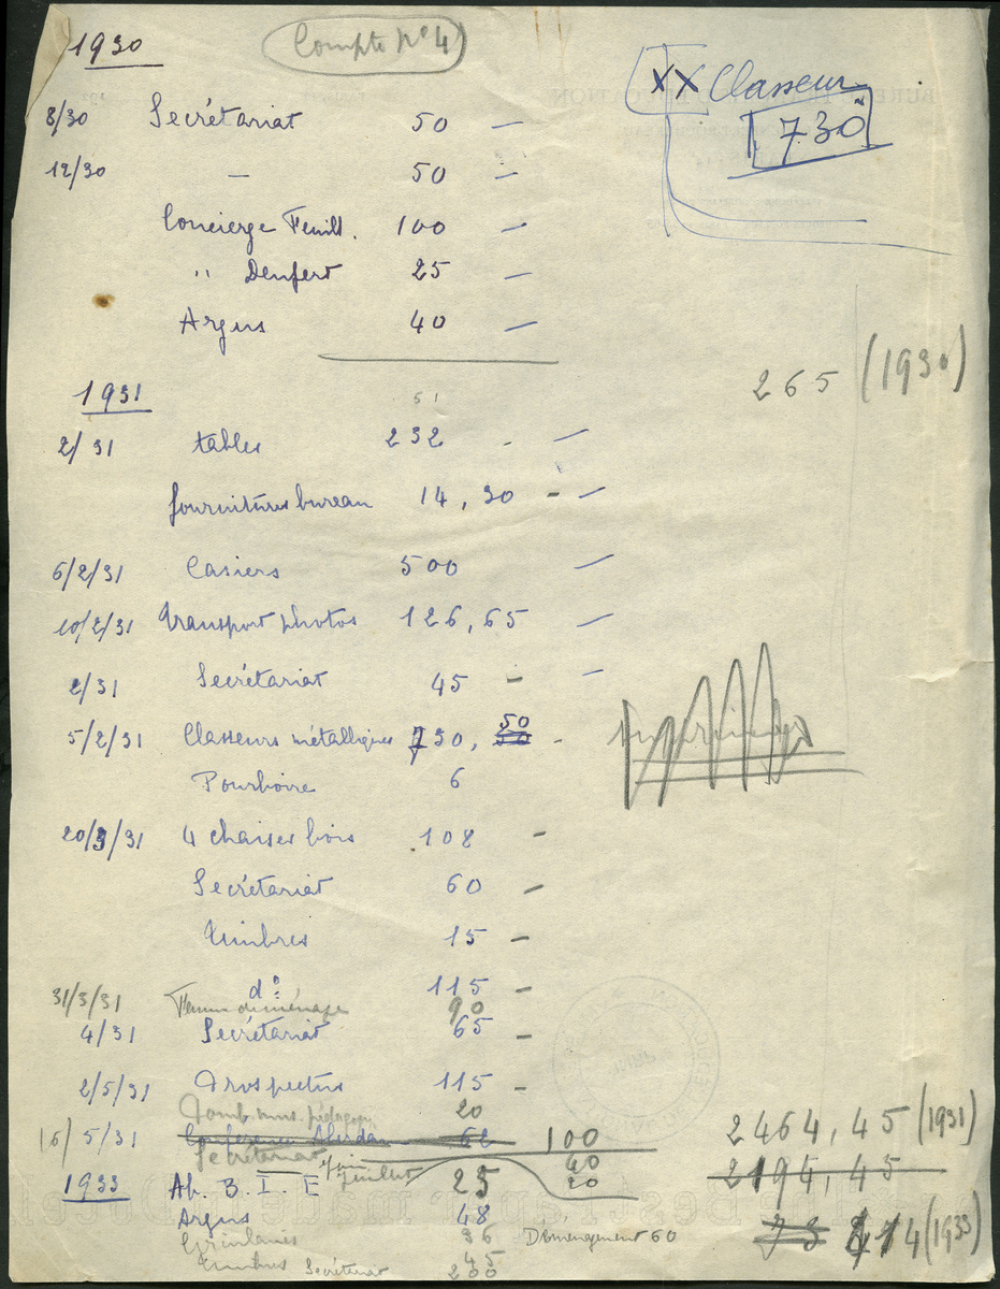 1930 Compte N° 4
XX Classeur
730
8/30 Secrétariat 50 —
12/30 — 50 —
Concierge Feuill. 100 —
" Denfert 25 —
Argus 40 —
265 (1930)
1931
51
2/31 tables 232 - —
fournitures bureau 14,30 - —
6/2/31 Casiers 500 —
10/2/31 Transport photos 126,65 —
2/31 Secrétariat 45 - —
5/2/31 Classeurs métalliques 730, 50 -
Pourboire 6
20/3/31 4 chaises bois 108 -
Secrétariat 60 -
Timbres 15 -
d° 115 -
31/3/31 Femme de ménage 90
4/31 Secrétariat 65 -
2/5/31 Prospectus 115 -
20
16/5/31 Conférence 62 100
Secrétariat juin juillet 40
20
2464,45 (1931)
2194,45
1933 Ab. B. I. E 25
Argus 48
Circulaires 36 Déménagement 60
Timbres 45
Secrétariat 200
414 (1933)